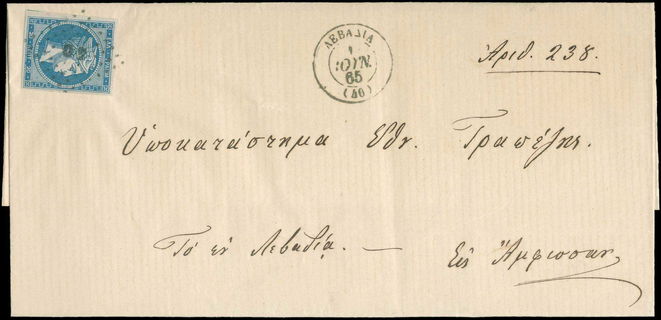 ΛΕΒΑΔΙΑ
1
ΙΟΥΝ.
65
(46)
Ἀριθ. 238.
Ὑποκατάστημα Εθν. Τραπέζης.
Τὸ ἐν Λεβαδίᾳ. —
Εἰς Ἄμφισσαν